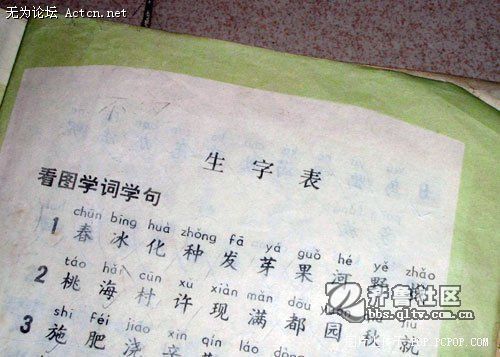 无为论坛 Actcn.net
生字表
看图学词学句
chūn bīng huà zhǒng fā yá guǒ hé yě zhǎo
1 春 冰 化 种 发 芽 果 河 野 找
táo hǎi cūn xǔ xiàn mǎn dōu yuán jiù
2 桃 海 村 许 现 满 都 园 秋 就
shī féi jiāo xīn qín láo dòng
3 施 肥 浇 辛
齐鲁社区
bbs.qltv.com.cn